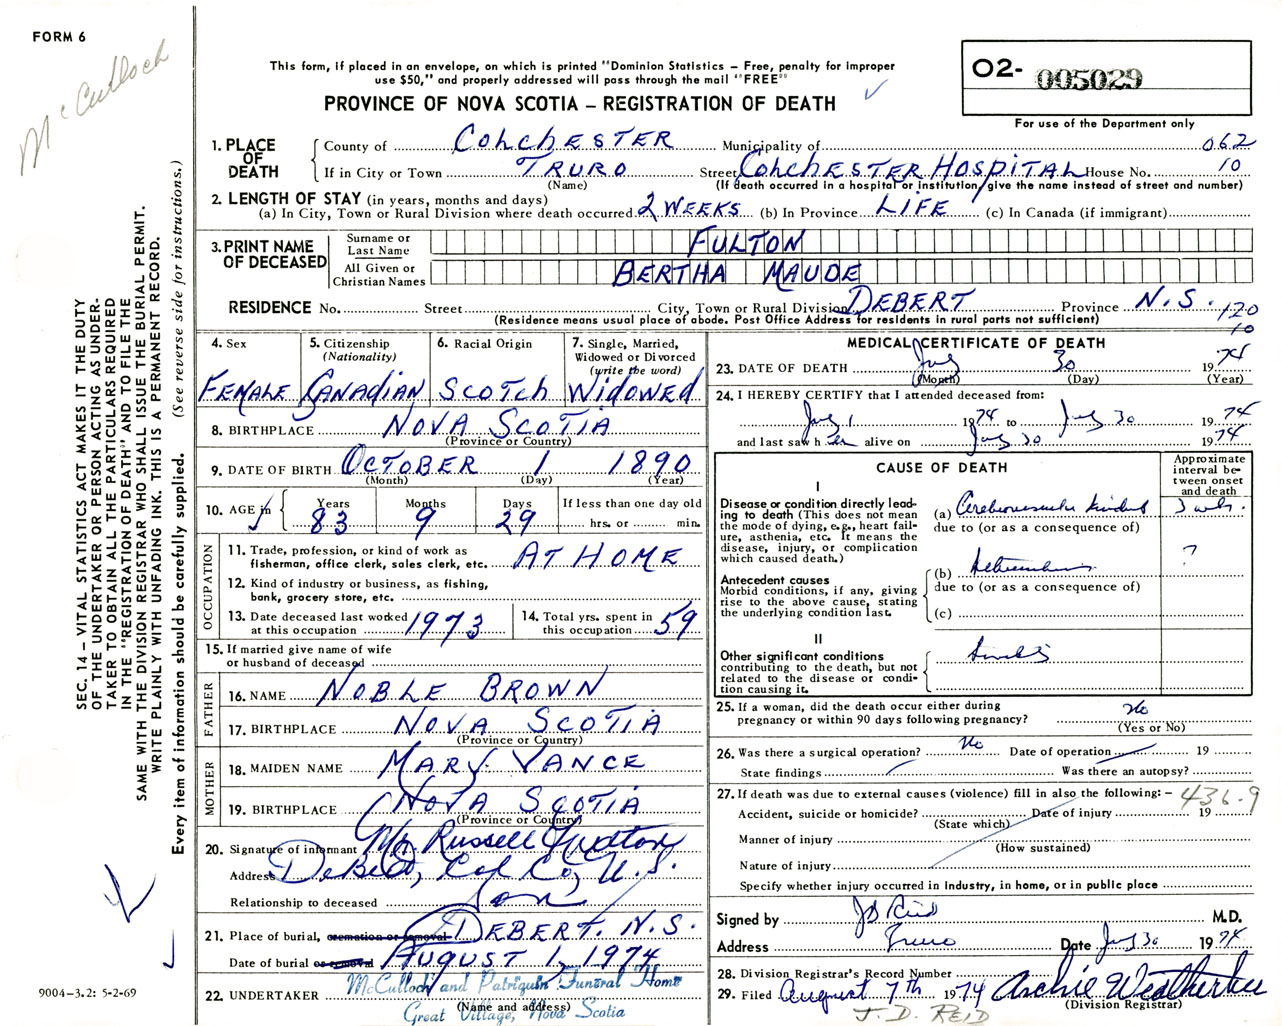 FORM 6
McCulloch
This form, if placed in an envelope, on which is printed "Dominion Statistics – Free, penalty for improper
use $50," and properly addressed will pass through the mail "FREE"
PROVINCE OF NOVA SCOTIA – REGISTRATION OF DEATH
O2- 005029
For use of the Department only
SEC. 14 – VITAL STATISTICS ACT MAKES IT THE DUTY
OF THE UNDERTAKER OR PERSON ACTING AS UNDER-
TAKER TO OBTAIN ALL THE PARTICULARS REQUIRED
IN THE "REGISTRATION OF DEATH" AND TO FILE THE
SAME WITH THE DIVISION REGISTRAR WHO SHALL ISSUE THE BURIAL PERMIT.
WRITE PLAINLY WITH UNFADING INK. THIS IS A PERMANENT RECORD.
Every item of information should be carefully supplied. (See reverse side for instructions.)
1. PLACE OF DEATH
County of COLCHESTER Municipality of 062
If in City or Town TRURO Street COLCHESTER HOSPITAL House No. 10
(Name) (If death occurred in a hospital or institution, give the name instead of street and number)
2. LENGTH OF STAY (in years, months and days)
(a) In City, Town or Rural Division where death occurred 2 WEEKS (b) In Province LIFE (c) In Canada (if immigrant)
3. PRINT NAME OF DECEASED
Surname or Last Name FULTON
All Given or Christian Names BERTHA MAUDE
RESIDENCE No. Street City, Town or Rural Division DEBERT Province N.S. 120
(Residence means usual place of abode. Post Office Address for residents in rural parts not sufficient) 10
4. Sex FEMALE
5. Citizenship (Nationality) CANADIAN
6. Racial Origin SCOTCH
7. Single, Married, Widowed or Divorced (write the word) WIDOWED
8. BIRTHPLACE NOVA SCOTIA
(Province or Country)
9. DATE OF BIRTH OCTOBER 1 1890
(Month) (Day) (Year)
10. AGE in Years 83 Months 9 Days 29
If less than one day old
hrs. or min.
OCCUPATION
11. Trade, profession, or kind of work as
fisherman, office clerk, sales clerk, etc. AT HOME
12. Kind of industry or business, as fishing,
bank, grocery store, etc.
13. Date deceased last worked
at this occupation 1973
14. Total yrs. spent in
this occupation 59
15. If married give name of wife
or husband of deceased
FATHER
16. NAME NOBLE BROWN
17. BIRTHPLACE NOVA SCOTIA
(Province or Country)
MOTHER
18. MAIDEN NAME MARY VANCE
19. BIRTHPLACE NOVA SCOTIA
(Province or Country)
20. Signature of informant Mr Russell Fulton
Address Debert, Col Co, N.S.
Relationship to deceased Son
21. Place of burial, cremation or removal DEBERT. N.S.
Date of burial or removal AUGUST 1, 1974
22. UNDERTAKER McCulloch and Patriquin Funeral Home
(Name and address)
Great Village, Nova Scotia
MEDICAL CERTIFICATE OF DEATH
23. DATE OF DEATH July 30 1974
(Month) (Day) (Year)
24. I HEREBY CERTIFY that I attended deceased from:
July 1 1974 to July 30 1974
and last saw h er alive on July 30 1974
CAUSE OF DEATH
Approximate
interval be-
tween onset
and death
I
Disease or condition directly lead-
ing to death (This does not mean
the mode of dying, e.g., heart fail-
ure, asthenia, etc. It means the
disease, injury, or complication
which caused death.)
(a) Cerebrovascular Accident 3 wks.
due to (or as a consequence of)
Antecedent causes
Morbid conditions, if any, giving
rise to the above cause, stating
the underlying condition last.
(b) ?
due to (or as a consequence of)
(c)
II
Other significant conditions
contributing to the death, but not
related to the disease or condi-
tion causing it.
25. If a woman, did the death occur either during
pregnancy or within 90 days following pregnancy? No
(Yes or No)
26. Was there a surgical operation? No Date of operation 19
State findings Was there an autopsy?
27. If death was due to external causes (violence) fill in also the following: – 436.9
Accident, suicide or homicide? Date of injury 19
(State which)
Manner of injury
(How sustained)
Nature of injury
Specify whether injury occurred in industry, in home, or in public place
Signed by J D Reid M.D.
Address Truro Date July 30 1974
28. Division Registrar's Record Number
29. Filed August 7th 1974 Archie Weatherbee
(Division Registrar)
J. D. REID
9004–3.2: 5-2-69